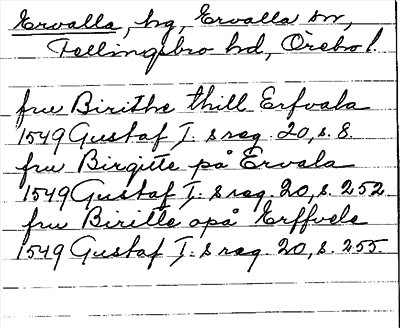 Ervalla, hg, Ervalla sn,
Fellingsbro hd, Örebro l.
fru Birithe thill Erfvala
1549 Gustaf I:s reg. 20, s. 8.
fru Birgitte på Ervala
1549 Gustaf I:s reg. 20, s. 252
fru Biritte opå Erffvele
1549 Gustaf I:s reg. 20, s. 255.